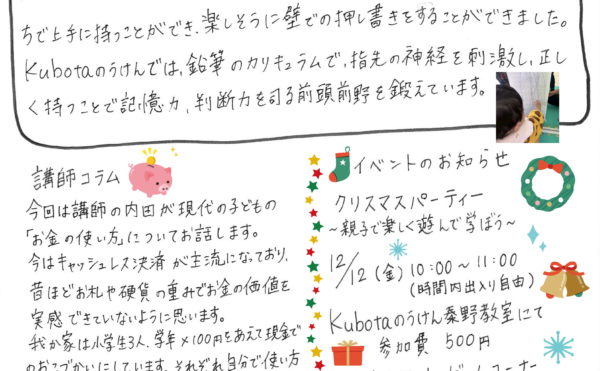 ちで上手に持つことができ、楽しそうに壁での押し書きをすることができました。
Kubotaのうけんでは、鉛筆のカリキュラムで、指先の神経を刺激し、正し
く持つことで記憶力、判断力を司る前頭前野を鍛えています。
講師コラム
今回は講師の内田が現代の子どもの
「お金の使い方」についてお話します。
今はキャッシュレス決済が主流になっており、
昔ほどお札や硬貨の重みでお金の価値を
実感できていないように思います。
我が家は小学生3人、学年×100円をあえて現金で
のおこづかいにしています。それぞれ自分で使い方
イベントのお知らせ
クリスマスパーティー
~親子で楽しく遊んで学ぼう~
12/12(金)10:00~11:00
(時間内出入り自由)
Kubotaのうけん秦野教室にて
参加費 500円